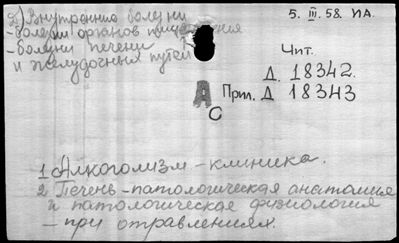 2) Внутренние болезни
- болезни органов пищеварения
- болезни печени
и желудочных путей
5. III. 58. ИА.
Чит.
Д. 18342.
Прил. Д 18343
А
С
1 Алкоголизм - клиника.
2 Печень - патологическая анатомия
и патологическая физиология
- при отравлениях.